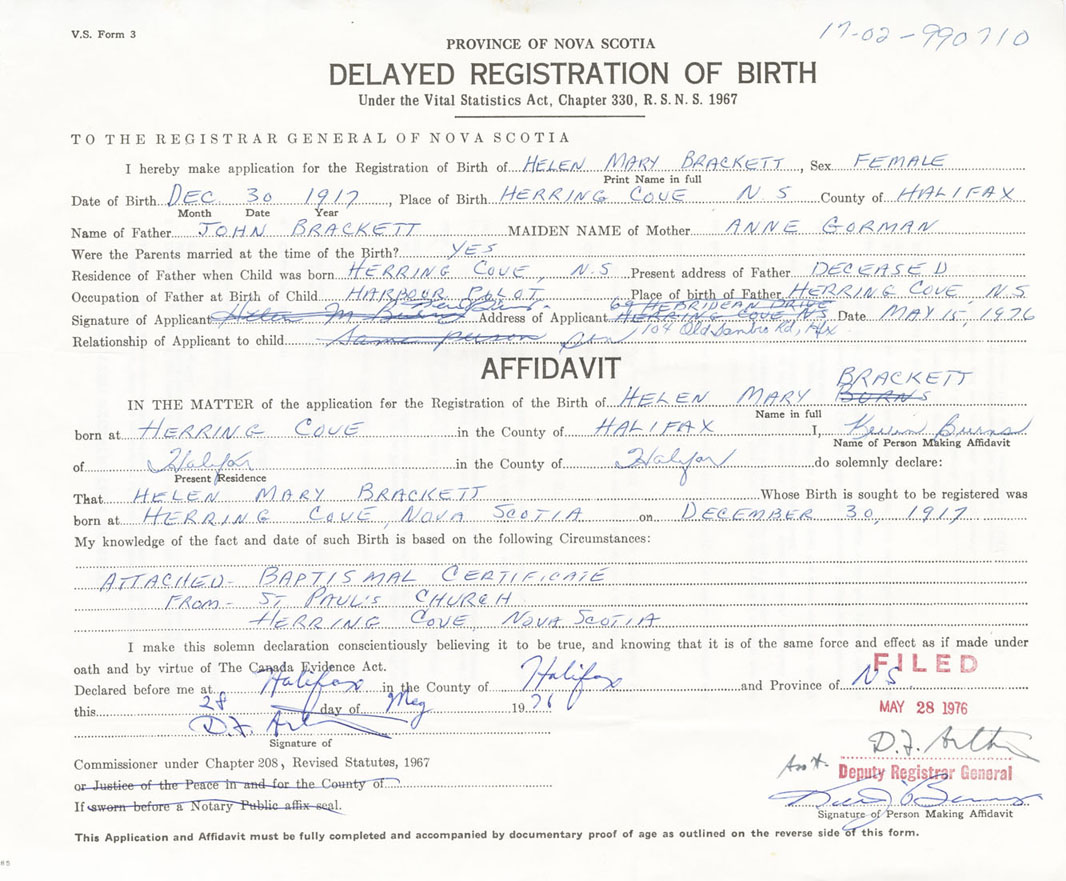 V.S. Form 3
17-02-990710
PROVINCE OF NOVA SCOTIA
DELAYED REGISTRATION OF BIRTH
Under the Vital Statistics Act, Chapter 330, R.S.N.S. 1967
TO THE REGISTRAR GENERAL OF NOVA SCOTIA
I hereby make application for the Registration of Birth of HELEN MARY BRACKETT, Sex FEMALE
Print Name in full
Date of Birth DEC. 30 1917, Place of Birth HERRING COVE N.S County of HALIFAX
Month Date Year
Name of Father JOHN BRACKETT MAIDEN NAME of Mother ANNE GORMAN
Were the Parents married at the time of the Birth? YES
Residence of Father when Child was born HERRING COVE, N.S Present address of Father DECEASED
Occupation of Father at Birth of Child HARBOUR PILOT Place of birth of Father HERRING COVE, N.S
69 HEBRIDEAN DRIVE
Signature of Applicant Helen M Burns Address of Applicant HERRING COVE N.S Date MAY 15, 1976
1104 Old Sambro Rd, Hfx
Relationship of Applicant to child Same person Son
AFFIDAVIT
BRACKETT
IN THE MATTER of the application for the Registration of the Birth of HELEN MARY BURNS
Name in full
born at HERRING COVE in the County of HALIFAX I, Kevin Burns
Name of Person Making Affidavit
of Halifax in the County of Halifax do solemnly declare:
Present Residence
That HELEN MARY BRACKETT Whose Birth is sought to be registered was
born at HERRING COVE, NOVA SCOTIA on DECEMBER 30, 1917
My knowledge of the fact and date of such Birth is based on the following Circumstances:
ATTACHED - BAPTISMAL CERTIFICATE
FROM - ST PAUL'S CHURCH
HERRING COVE, NOVA SCOTIA
I make this solemn declaration conscientiously believing it to be true, and knowing that it is of the same force and effect as if made under
oath and by virtue of The Canada Evidence Act.
FILED
Declared before me at Halifax in the County of Halifax and Province of NS
this 28 day of May 1976
MAY 28 1976
D.F. Arthur
Signature of
D.F. Arthur
Commissioner under Chapter 208, Revised Statutes, 1967
Asst. Deputy Registrar General
or Justice of the Peace in and for the County of
If sworn before a Notary Public affix seal.
Signature of Person Making Affidavit
This Application and Affidavit must be fully completed and accompanied by documentary proof of age as outlined on the reverse side of this form.